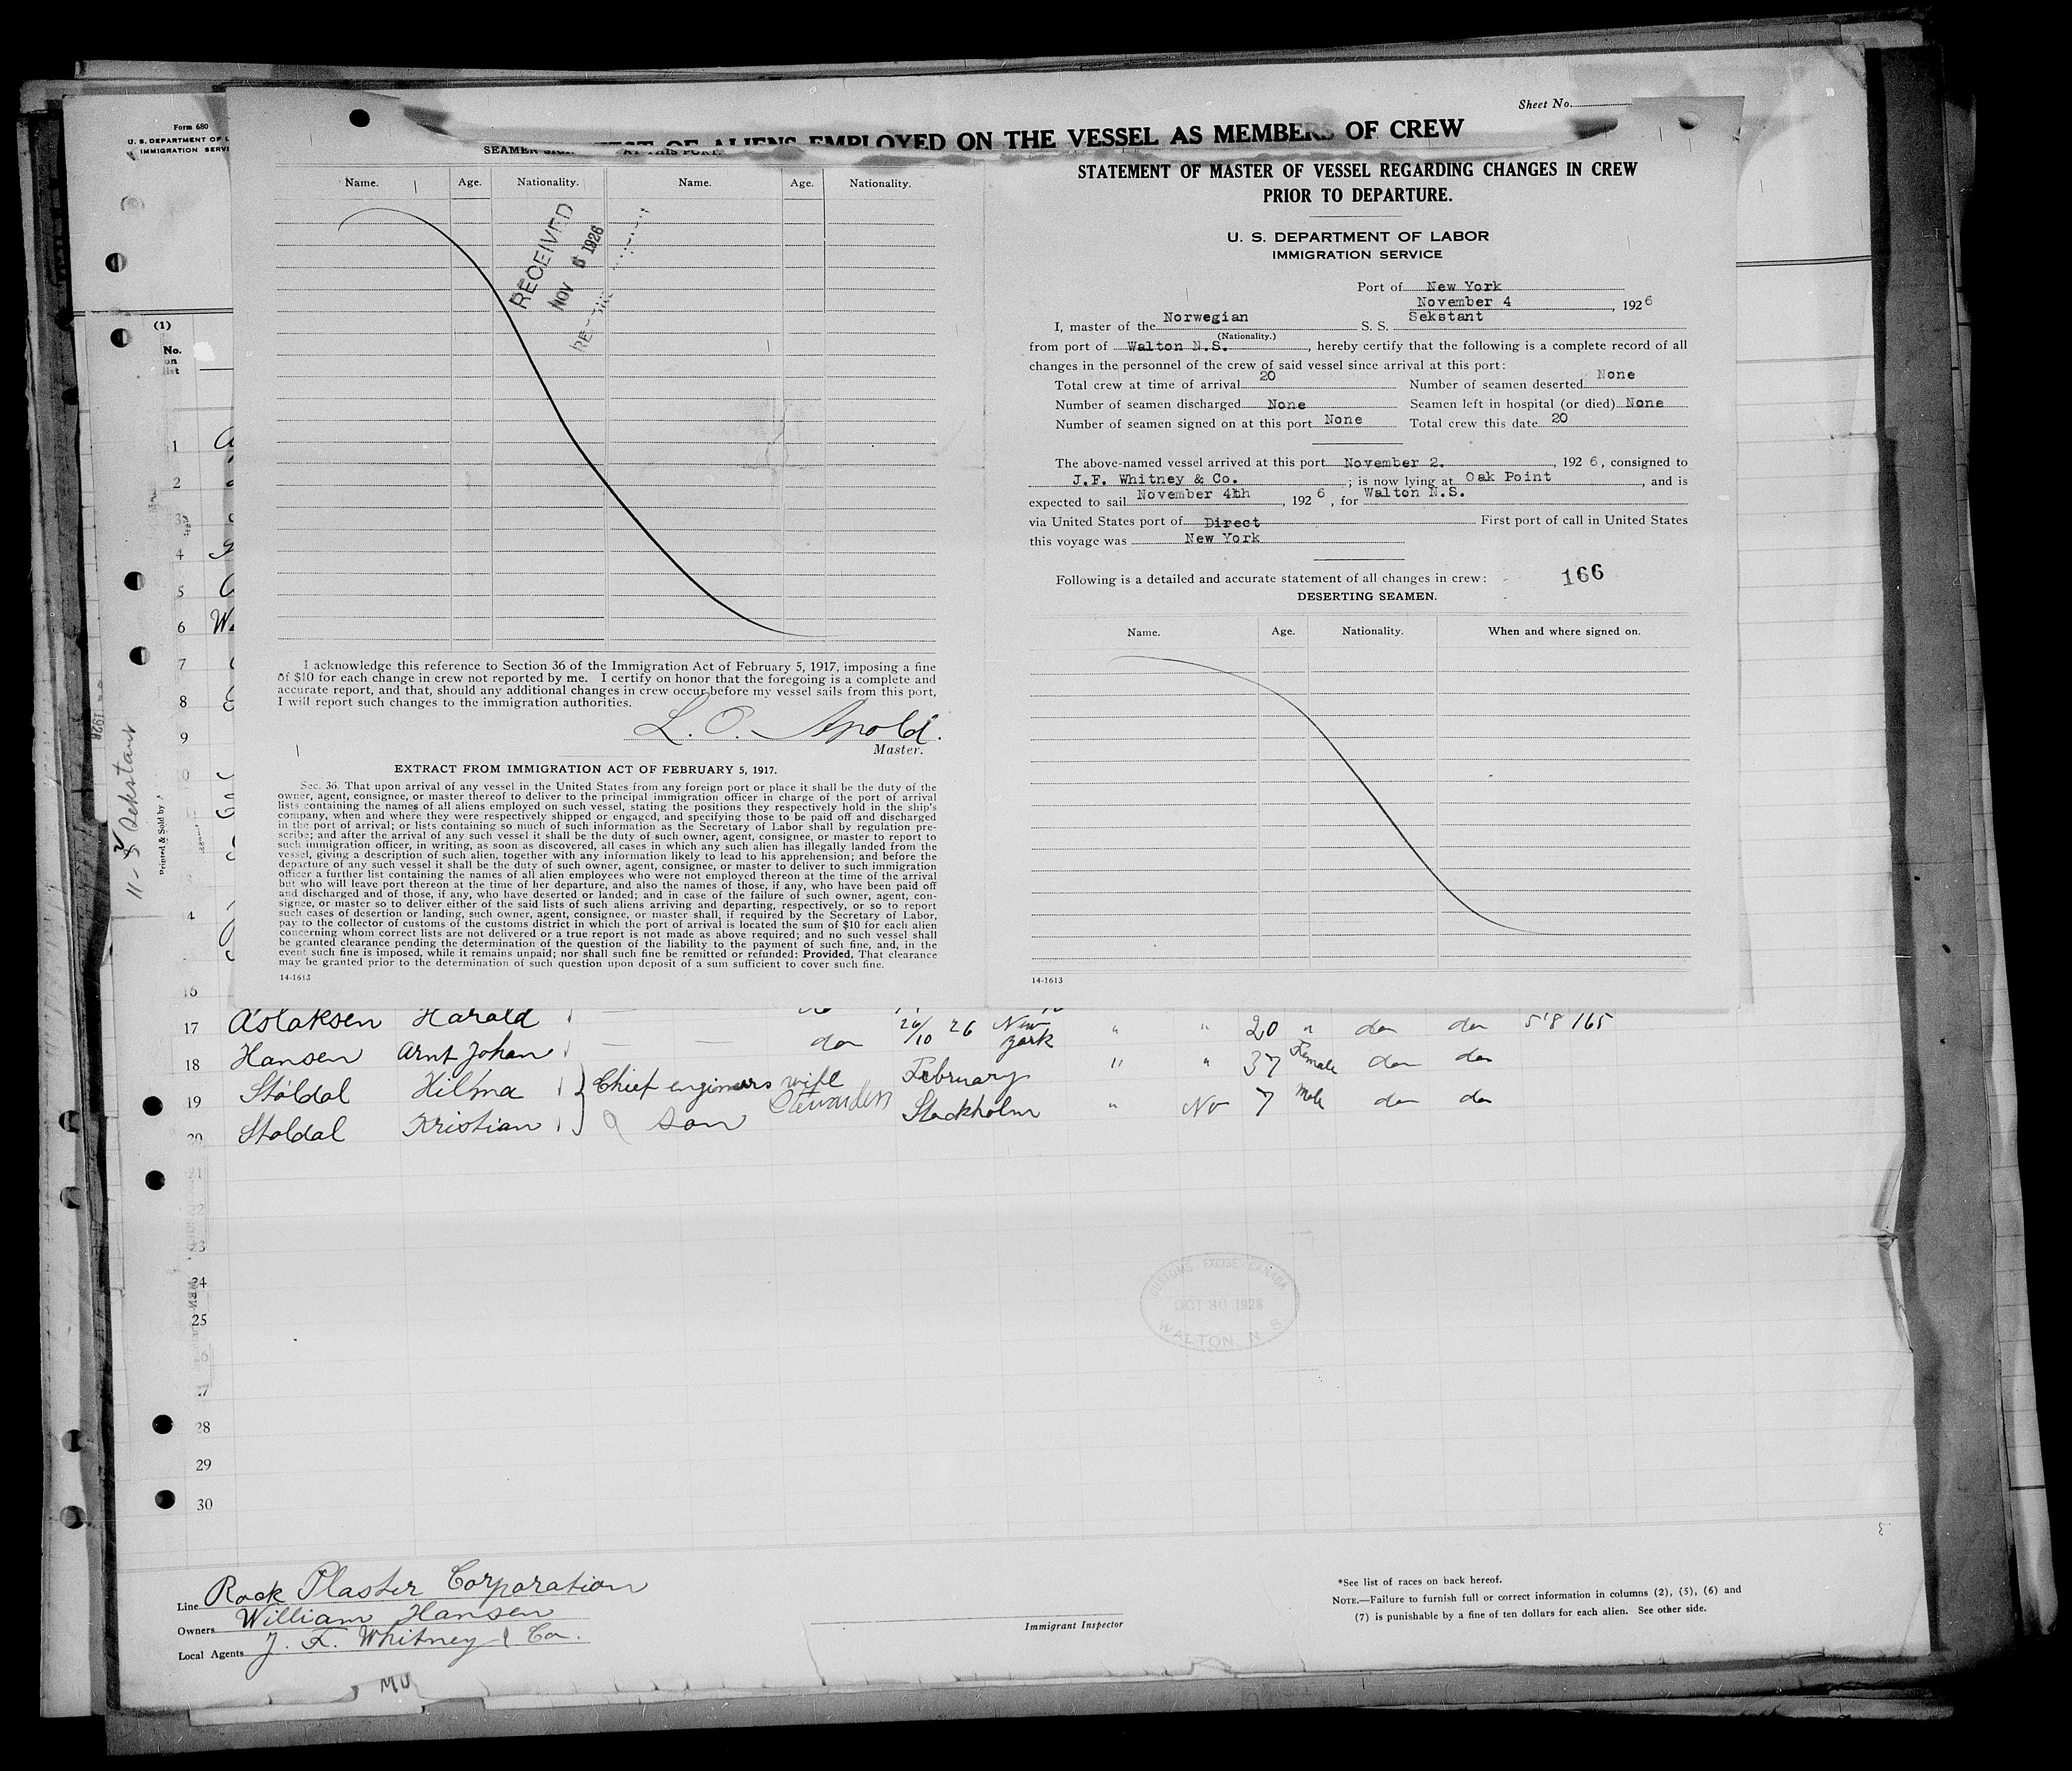 Form 680
U. S. DEPARTMENT OF L
IMMIGRATION SERVI
Sheet No.
OF ALIENS EMPLOYED ON THE VESSEL AS MEMBERS OF CREW
AT THIS PORT.
Name. Age. Nationality. Name. Age. Nationality.
RECEIVED
NOV 1926
I acknowledge this reference to Section 36 of the Immigration Act of February 5, 1917, imposing a fine
of $10 for each change in crew not reported by me. I certify on honor that the foregoing is a complete and
accurate report, and that, should any additional changes in crew occur before my vessel sails from this port,
I will report such changes to the immigration authorities.
L. O. Apold.
Master.
EXTRACT FROM IMMIGRATION ACT OF FEBRUARY 5, 1917.
Sec. 36. That upon arrival of any vessel in the United States from any foreign port or place it shall be the duty of the
owner, agent, consignee, or master thereof to deliver to the principal immigration officer in charge of the port of arrival
lists containing the names of all aliens employed on such vessel, stating the positions they respectively hold in the ship's
company, when and where they were respectively shipped or engaged, and specifying those to be paid off and discharged
in the port of arrival; or lists containing so much of such information as the Secretary of Labor shall by regulation pre-
scribe; and after the arrival of any such vessel it shall be the duty of such owner, agent, consignee, or master to report to
such immigration officer, in writing, as soon as discovered, all cases in which any such alien has illegally landed from the
vessel, giving a description of such alien, together with any information likely to lead to his apprehension; and before the
departure of any such vessel it shall be the duty of such owner, agent, consignee, or master to deliver to such immigration
officer a further list containing the names of all alien employees who were not employed thereon at the time of the arrival
but who will leave port thereon at the time of her departure, and also the names of those, if any, who have been paid off
and discharged and of those, if any, who have deserted or landed; and in case of the failure of such owner, agent, con-
signee, or master so to deliver either of the said lists of such aliens arriving and departing, respectively, or so to report
such cases of desertion or landing, such owner, agent, consignee, or master shall, if required by the Secretary of Labor,
pay to the collector of customs of the customs district in which the port of arrival is located the sum of $10 for each alien
concerning whom correct lists are not delivered or a true report is not made as above required; and no such vessel shall
be granted clearance pending the determination of the question of the liability to the payment of such fine, and, in the
event such fine is imposed, while it remains unpaid; nor shall such fine be remitted or refunded: Provided, That clearance
may be granted prior to the determination of such question upon deposit of a sum sufficient to cover such fine.
14-1613
STATEMENT OF MASTER OF VESSEL REGARDING CHANGES IN CREW
PRIOR TO DEPARTURE.
U. S. DEPARTMENT OF LABOR
IMMIGRATION SERVICE
Port of New York
November 4, 1926
I, master of the Norwegian S. S. Sekstant
(Nationality.)
from port of Walton N.S., hereby certify that the following is a complete record of all
changes in the personnel of the crew of said vessel since arrival at this port:
Total crew at time of arrival 20 Number of seamen deserted None
Number of seamen discharged None Seamen left in hospital (or died) None
Number of seamen signed on at this port None Total crew this date 20
The above-named vessel arrived at this port November 2., 1926, consigned to
J.F. Whitney & Co.; is now lying at Oak Point, and is
expected to sail November 4th, 1926, for Walton N.S.
via United States port of Direct First port of call in United States
this voyage was New York
Following is a detailed and accurate statement of all changes in crew: 166
DESERTING SEAMEN.
Name. Age. Nationality. When and where signed on.
14-1613
(1)
No.
on
list
1
2
3
4
5
6
7
8
9
10
4
16
11-3 Sekstant
Printed & Sold by
17 Aslaksen Harald
18 Hansen Arnt Johan — — do 26/10 26 New York " " 20 " do do 5'8 165
19 Stoldal Hilma Chief engineers wife Stewardess February " " 37 Female do do
20 Stoldal Kristian son Stockholm " No 7 Male do do
21
22
23
24
25
28
29
30
CUSTOMS · EXCISE · CANADA
OCT 30 1926
WALTON N S
Line Rock Plaster Corporation
Owners William Hansen
Local Agents J. F. Whitney & Co.
Immigrant Inspector
*See list of races on back hereof.
NOTE.—Failure to furnish full or correct information in columns (2), (5), (6) and
(7) is punishable by a fine of ten dollars for each alien. See other side.